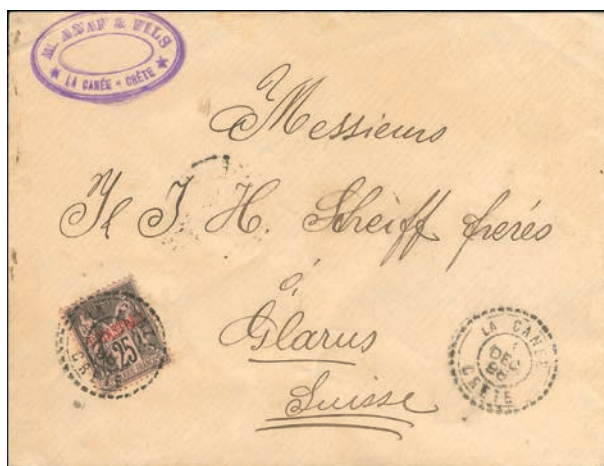 M. ASAF & FILS
LA CANÉE - CRÈTE
Messieurs
J. H. Streiff frerés
à
Glarus
Suisse
25
LA CANÉE
DEC
98
CRETE